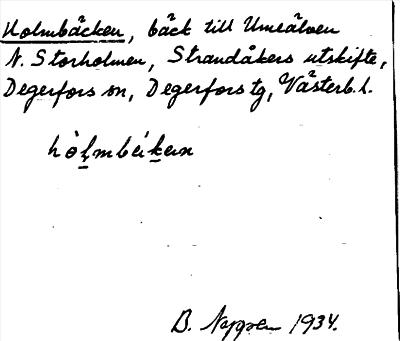 Holmbäcken, bäck till Umeälven
N. Storholmen, Strandåkers utskifte,
Degerfors sn, Degerfors tg, Västerb. l.
1934.